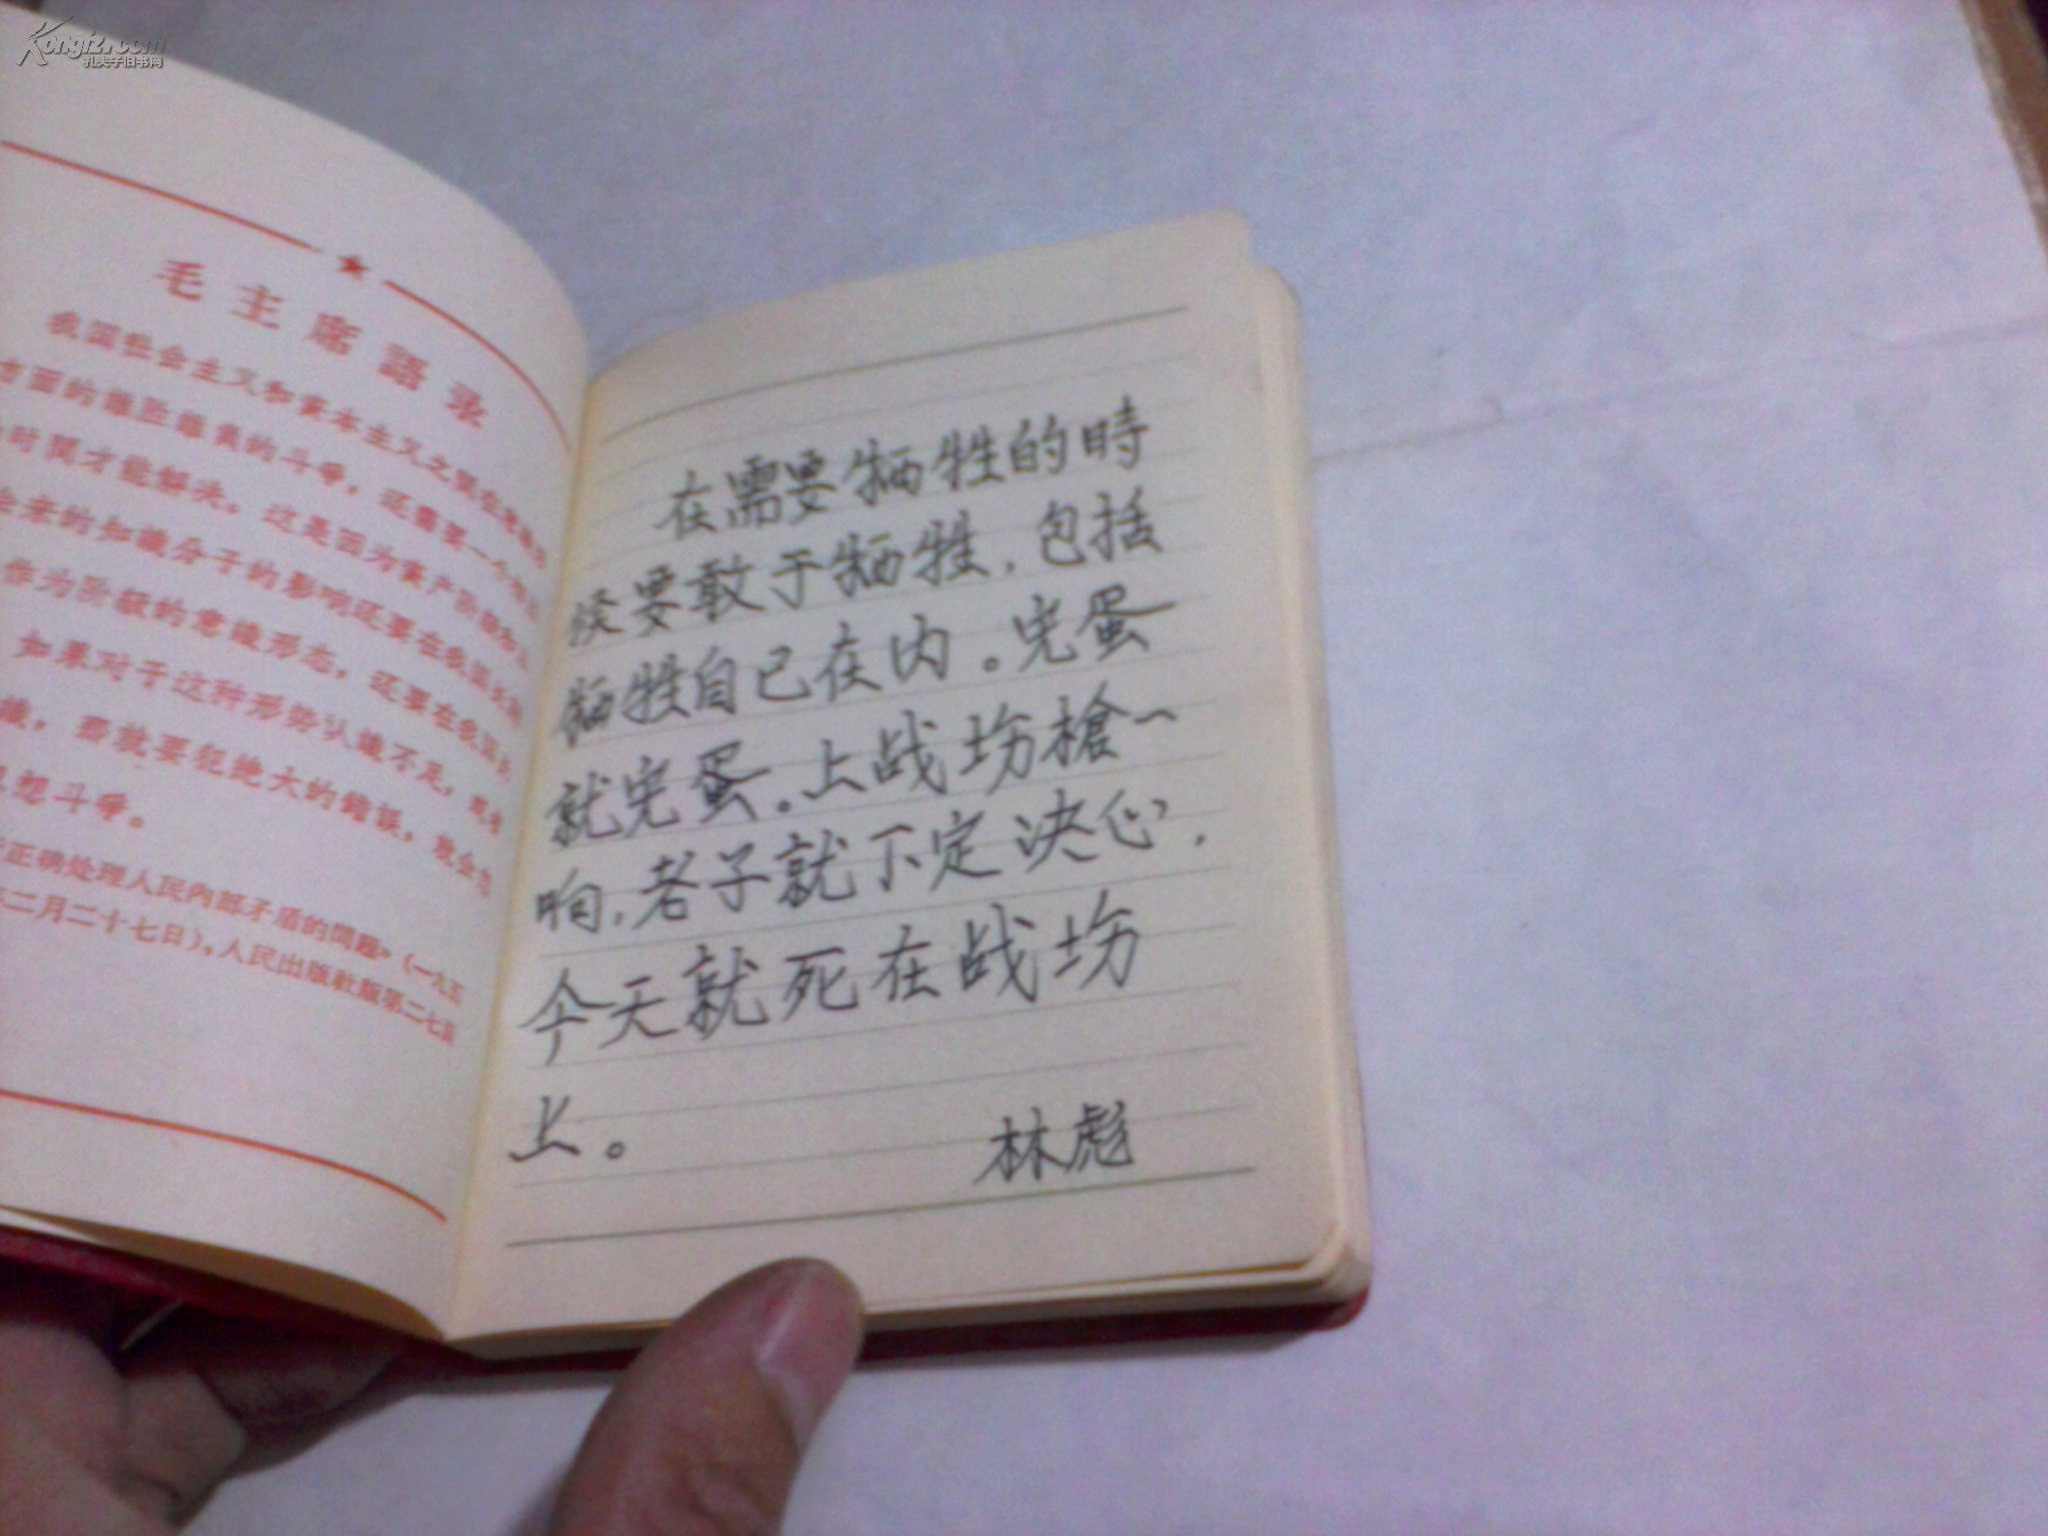 Kongfz.com
孔夫子旧书网
毛主席語录
我国社会主义和資本主义之間在意識形
方面的誰胜誰負的斗爭，还需要一个
时間才能解决。这是因为資产阶級和
会来的知識分子的影响还要在我国长期
作为阶級的意識形态，还要在我国长
如果对于这种形势认識不足，或者
識，那就要犯絕大的錯誤，就会忽
思想斗爭。
正确处理人民內部矛盾的問題》（一九五
年二月二十七日），人民出版社版第二七頁
在需要牺牲的時
候要敢于牺牲，包括
牺牲自己在内。完蛋
就完蛋。上战场槍一
响，老子就下定决心，
今天就死在战场
上。
林彪